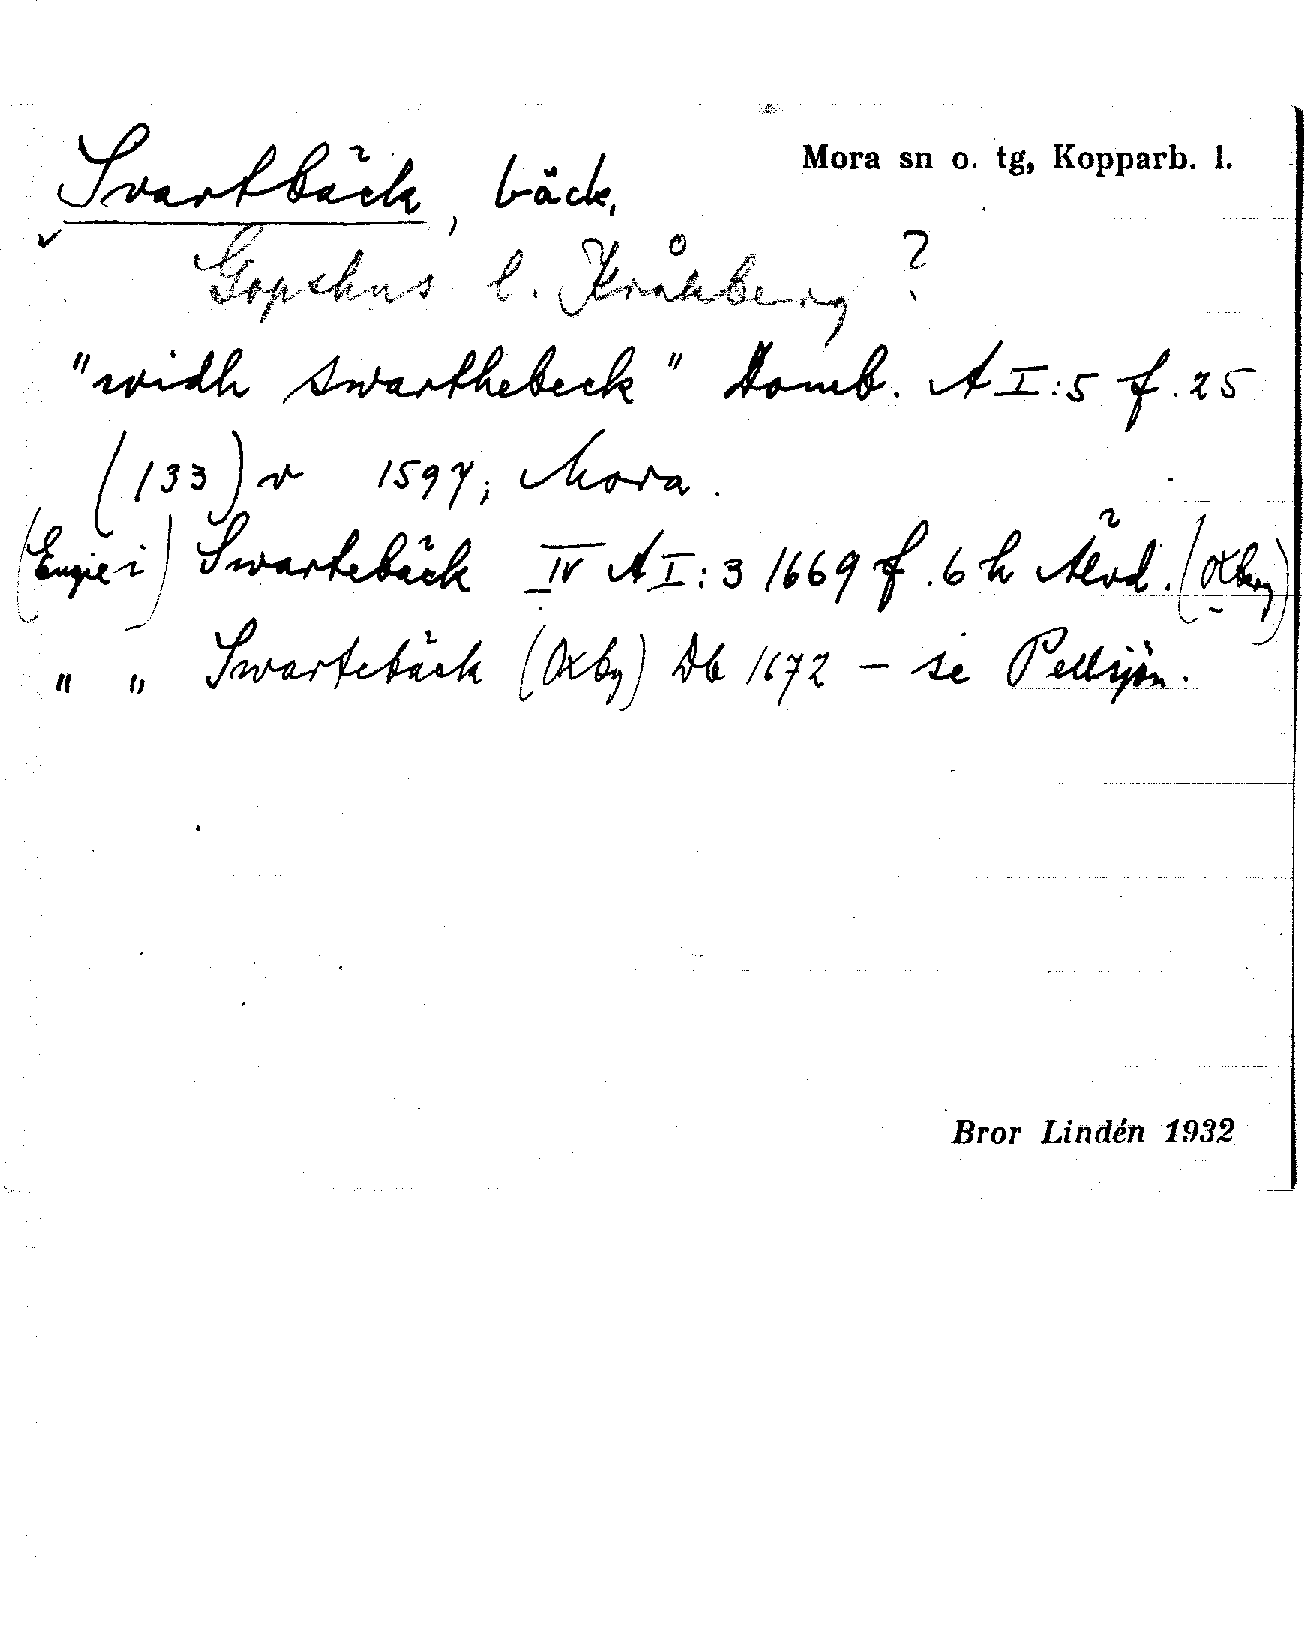 Mora sn o. tg, Kopparb. l.
Svartbäck, bäck,
Gopshus l. Kråkberg ?
"widh swarthebeck" Domb. A I:5 f. 25
(133) v 1597; Mora.
(Engie i) Swartebäck IV A I:3 1669 f. 6 h Älvd. (Oxbg)
" " Swartebäck (Oxbg) Db 1672 – se Pellsjön.
Bror Lindén 1932